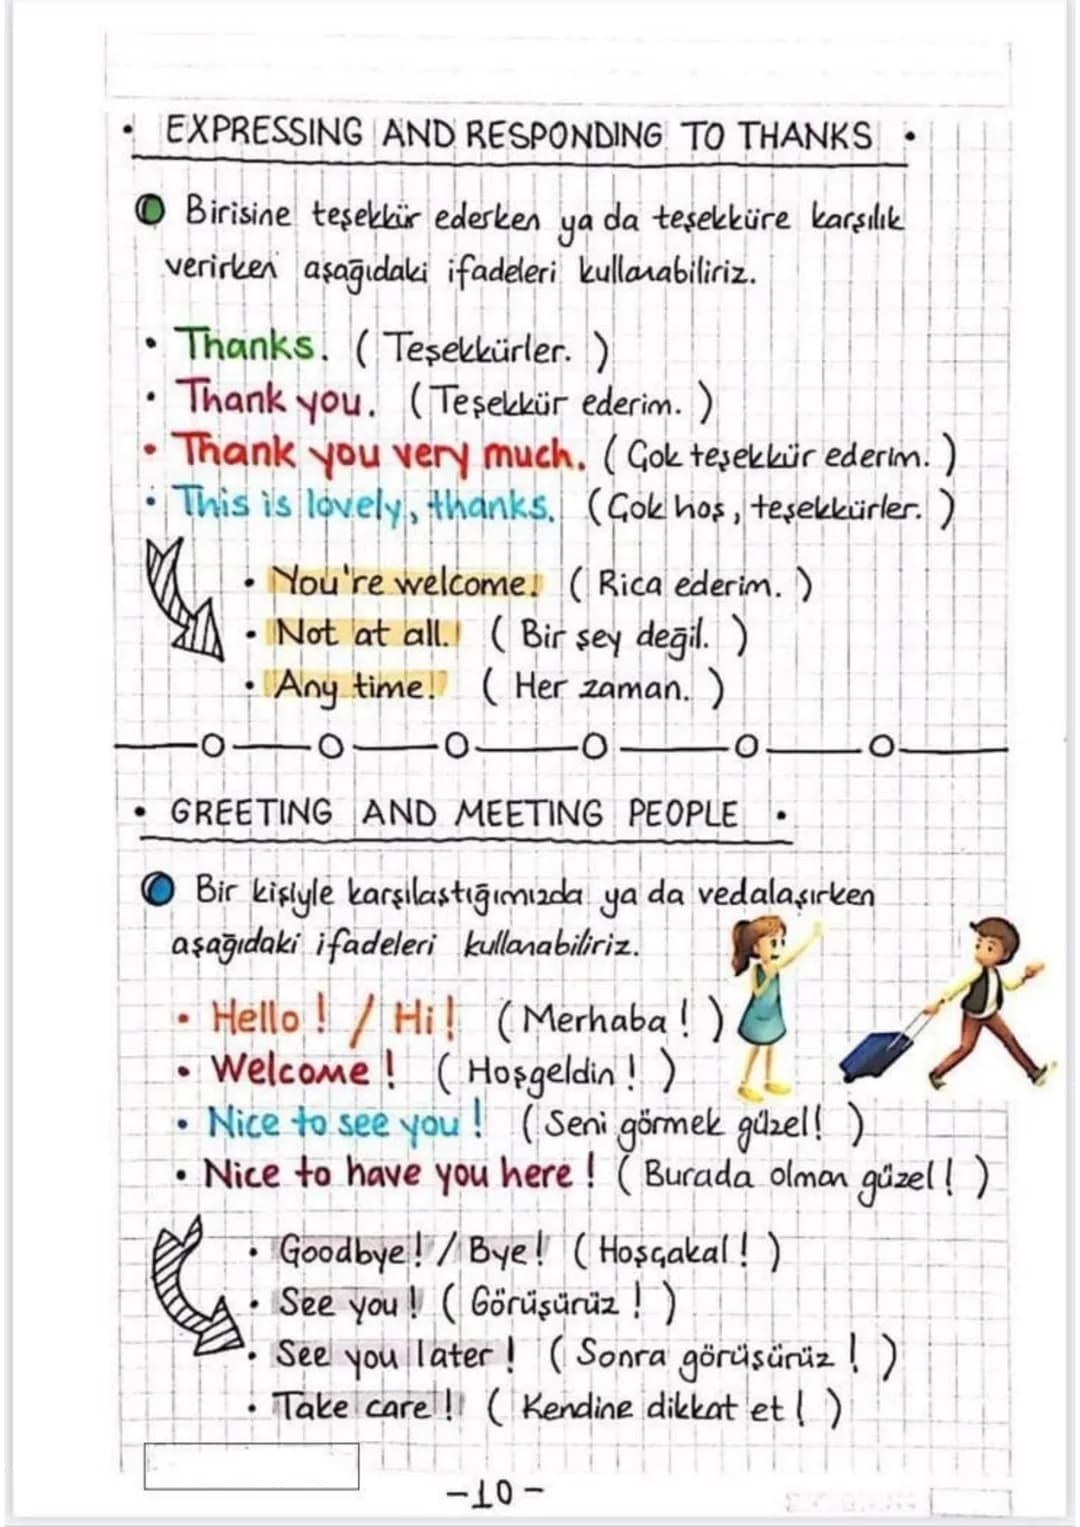 • EXPRESSING AND RESPONDING TO THANKS •
Birisine teşekkür ederken ya da teşekküre karşılık
verirken aşağıdaki ifadeleri kullanabiliriz.
• Thanks. ( Teşekkürler. )
• Thank you. ( Teşekkür ederim. )
• Thank you very much. ( Çok teşekkür ederim. )
• This is lovely, thanks. ( Çok hoş, teşekkürler. )
• You're welcome. ( Rica ederim. )
• Not at all. ( Bir şey değil. )
• Any time. ( Her zaman. )
• GREETING AND MEETING PEOPLE •
Bir kişiyle karşılaştığımızda ya da vedalaşırken
aşağıdaki ifadeleri kullanabiliriz.
• Hello! / Hi! ( Merhaba! )
• Welcome! ( Hoşgeldin! )
• Nice to see you! ( Seni görmek güzel! )
• Nice to have you here! ( Burada olman güzel! )
• Goodbye! / Bye! ( Hoşçakal! )
• See you! ( Görüşürüz! )
• See you later! ( Sonra görüşürüz! )
• Take care! ( Kendine dikkat et! )
-10-